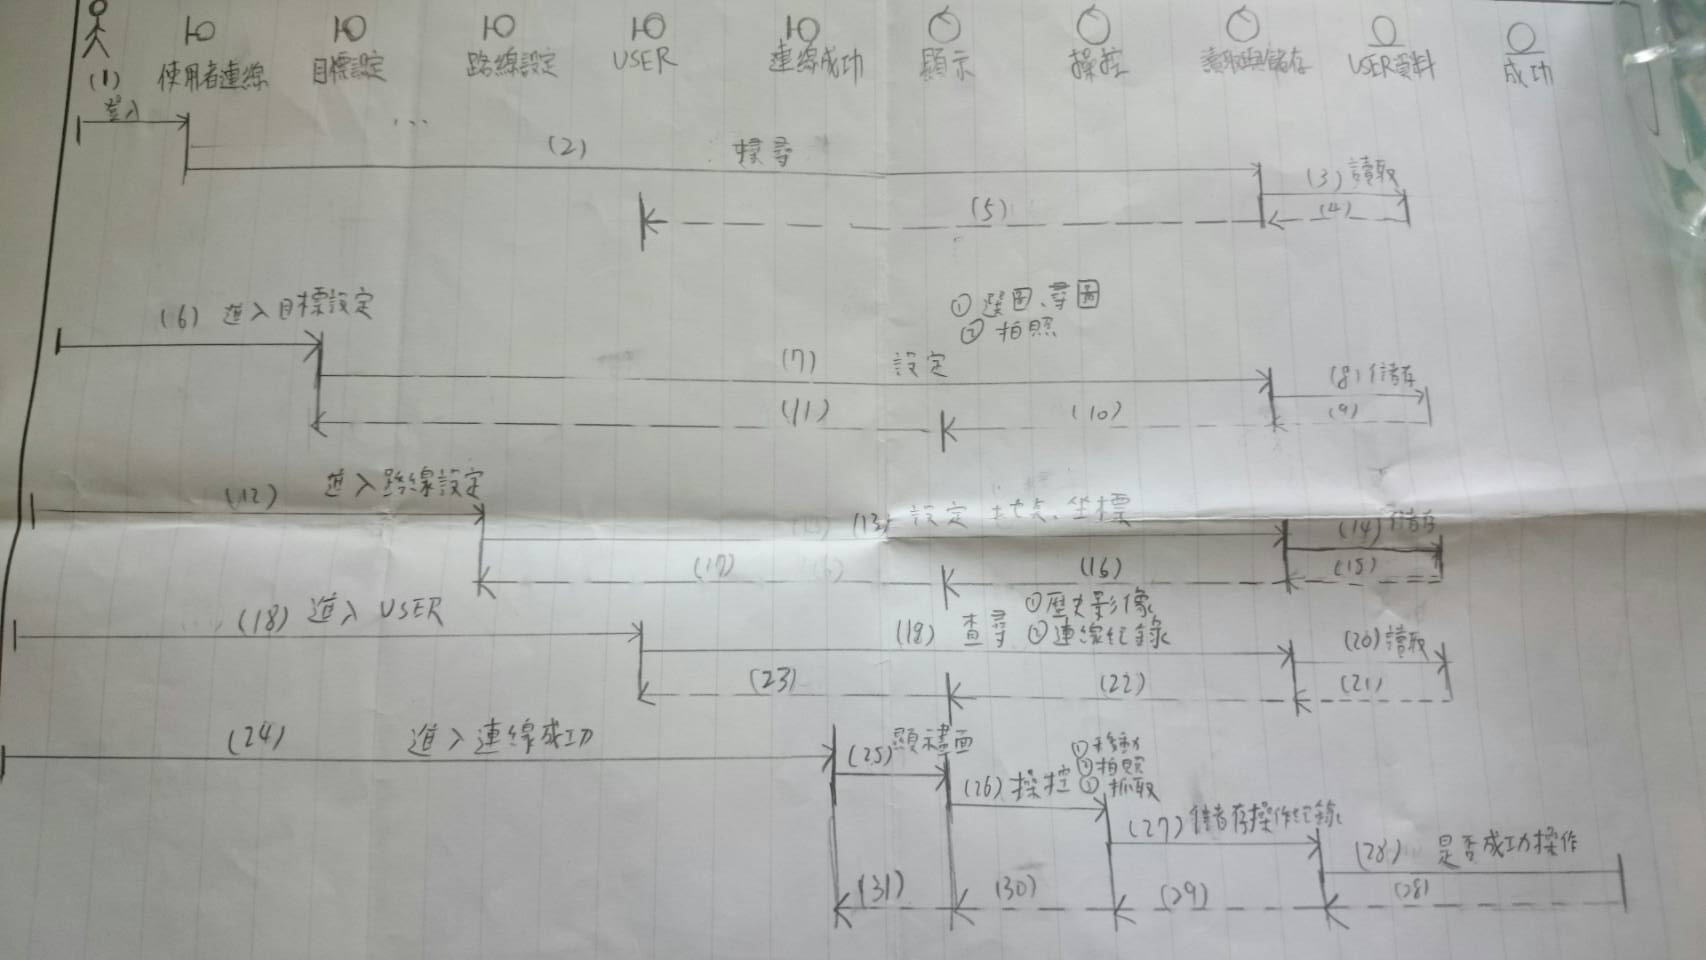 使用者連線 目標設定 路線設定 USER 連線成功 顯示 操控 讀取與儲存 USER資料 成功
(1)
登入
...
(2) 搜尋
(3) 讀取
(4)
(5)
(6) 進入目標設定
① 選圖、尋圖
② 拍照
(7) 設定
(8) 儲存
(9)
(10)
(11)
(12) 進入路線設定
(13) 設定 地點、坐標
(14) 儲存
(15)
(16)
(17)
(18) 進入 USER
(19) 查尋 ①歷史影像
②連線紀錄
(20) 讀取
(21)
(22)
(23)
(24) 進入連線成功
(25) 顯示畫面
(26) 操控 ① 移動
② 拍照
③ 抓取
(27) 儲存操作紀錄
(28) 是否成功操作
(28)
(29)
(30)
(31)